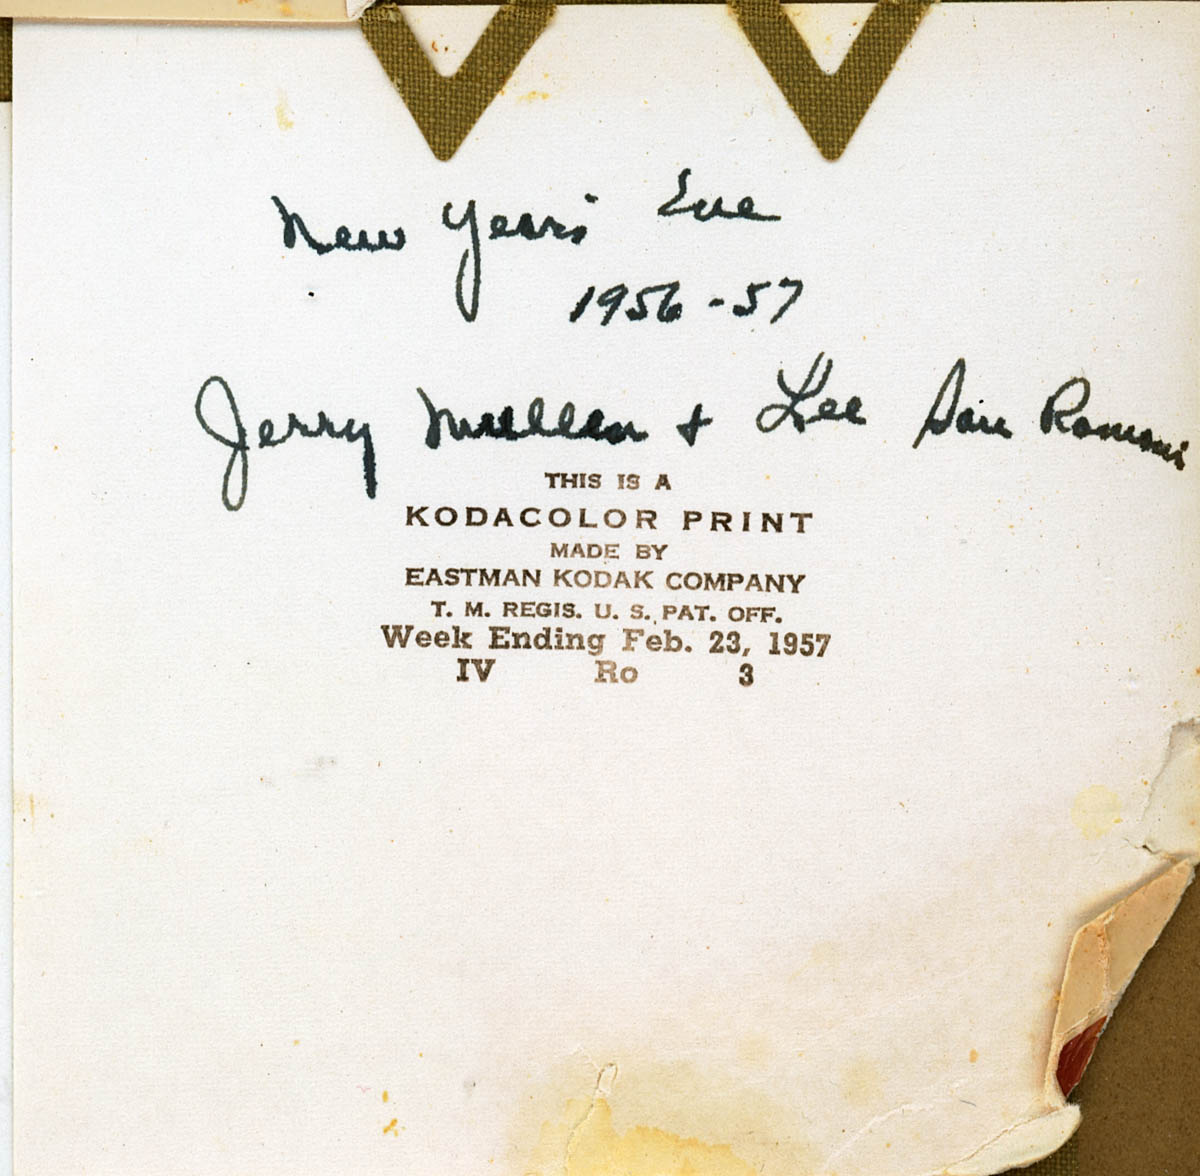 New Years' Eve
1956-57
Jerry Mullen & Lee San Romani
THIS IS A
KODACOLOR PRINT
MADE BY
EASTMAN KODAK COMPANY
T. M. REGIS. U. S. PAT. OFF.
Week Ending Feb. 23, 1957
IV Ro 3